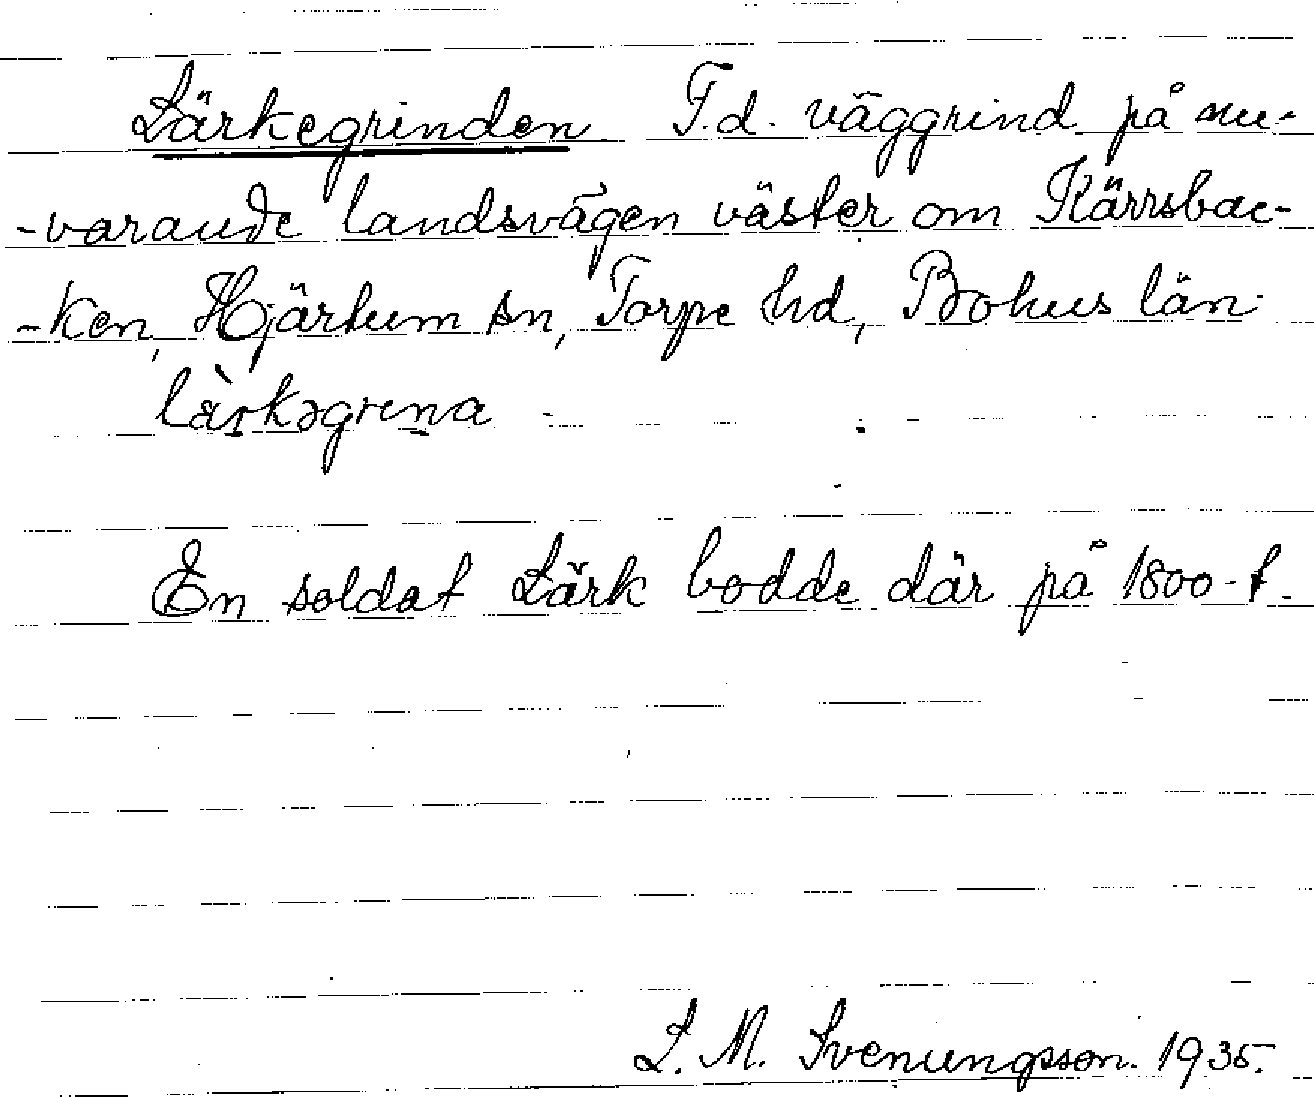 Lärkegrinden F.d. väggrind på nu-
-varande landsvägen väster om Kärrsbac-
-ken, Hjärtum sn, Torpe hd, Bohus län
lärkəgrena
En soldat Lärk bodde där på 1800-t.
L. M. Svenungsson. 1935.